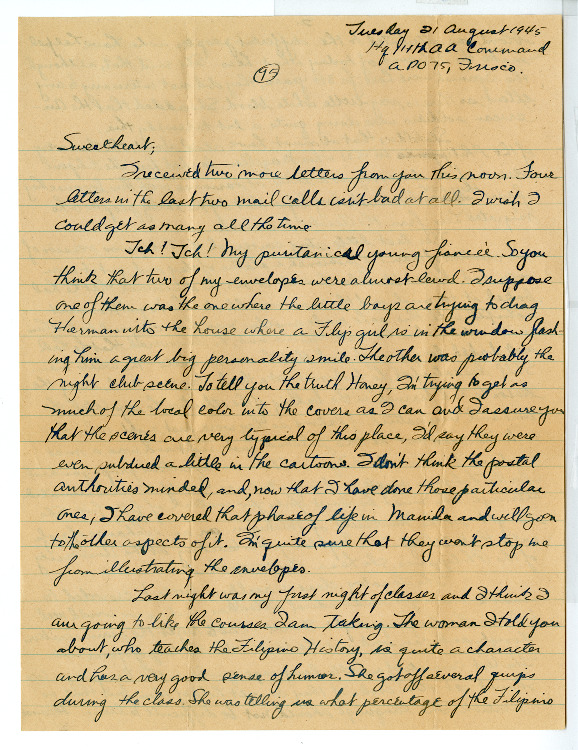 Tuesday 21 August 1945
Hq 14th AA Command
APO 75, Frisco.
95
Sweetheart;
I received two more letters from you this noon. Four
letters in the last two mail calls isn't bad at all. I wish I
could get as many all the time
Tch! Tch! My puritanical young fianceé. So you
think that two of my envelopes were almost lewd. I suppose
one of them was the one where the little boys are trying to drag
Herman into the house where a Flip girl is in the window flash-
ing him a great big personality smile. The other was probably the
night club scene. To tell you the truth Honey, I'm trying to get as
much of the local color into the covers as I can and I assure you
that the scenes are very typical of this place, I'd say they were
even subdued a little in the cartoons. I don't think the postal
authorities minded, and, now that I have done those particular
ones, I have covered that phase of life in Manila and will go on
to the other aspects of it. I'm quite sure that they won't stop me
from illustrating the envelopes.
Last night was my first night of classes and I think I
am going to like the courses I am taking. The woman I told you
about, who teaches the Filipino History, is quite a character
and has a very good sense of humor. She got off several quips
during the class. She was telling us what percentage of the Filipino